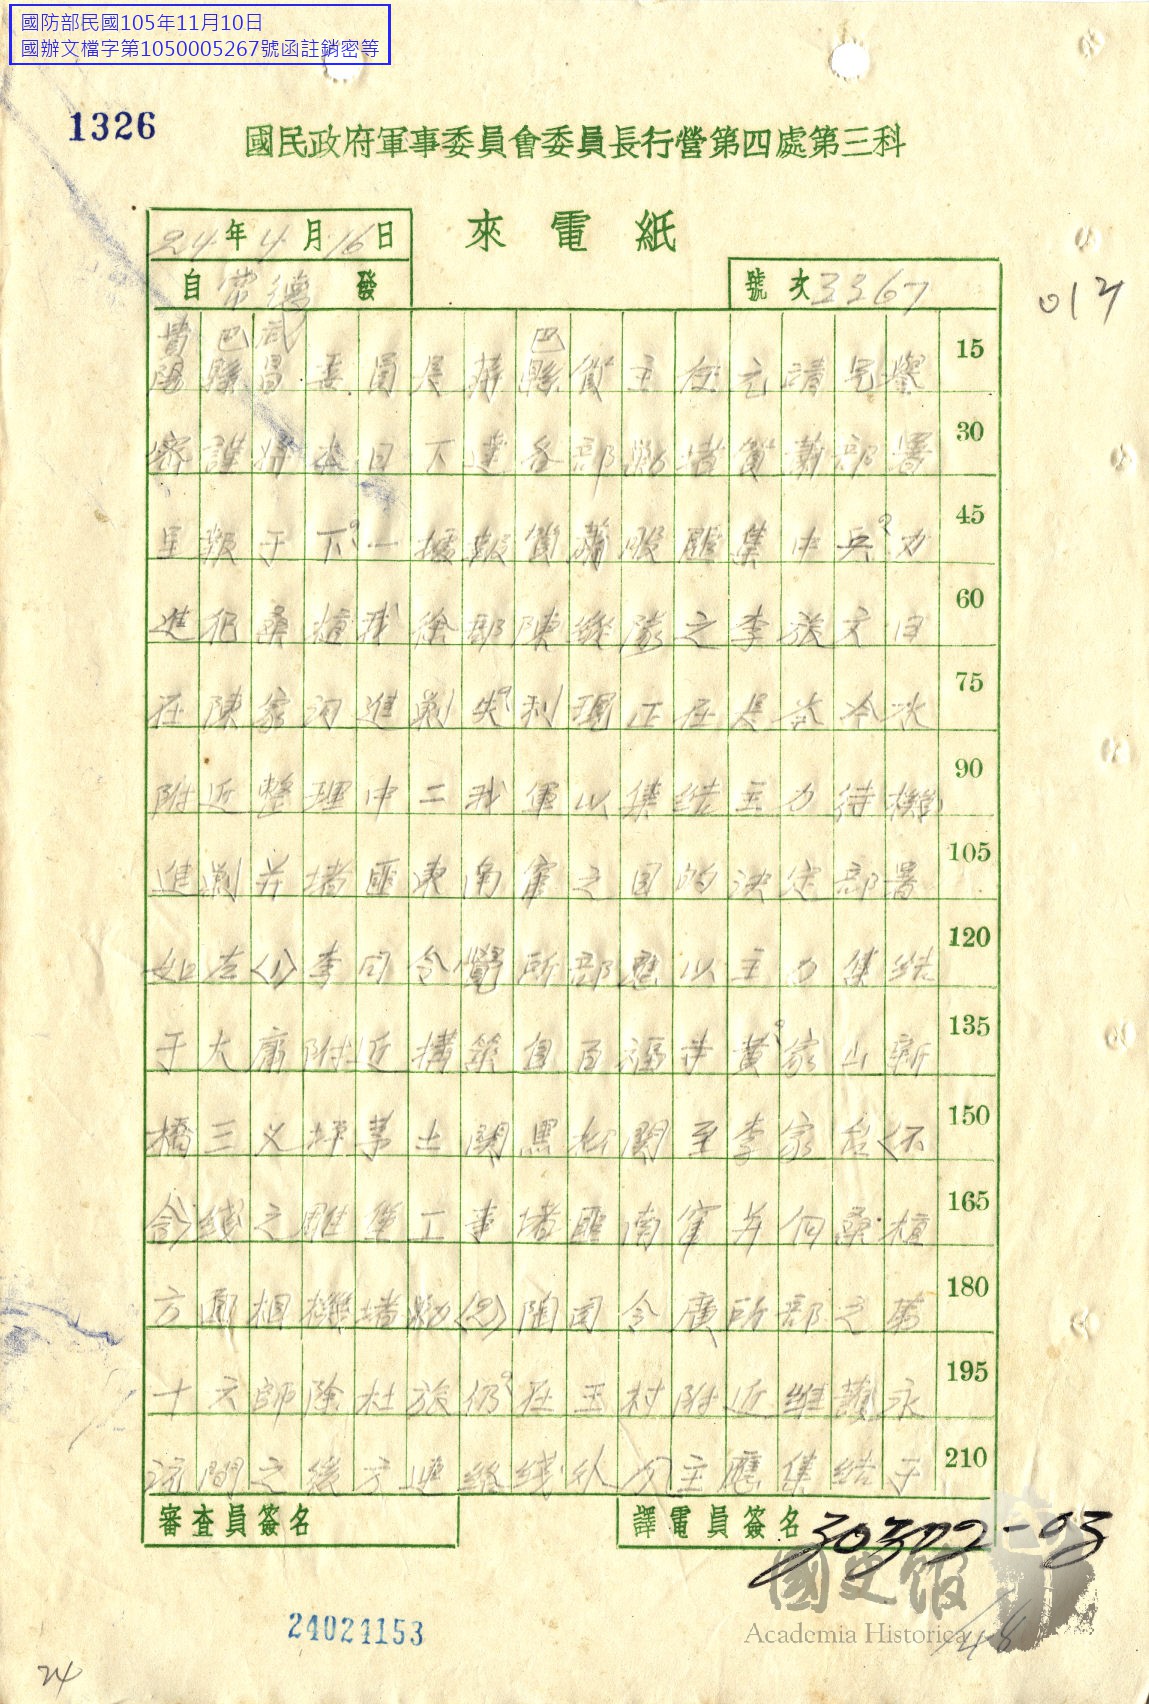 國防部民國105年11月10日
國辦文檔字第1050005267號函註銷密等
1326
國民政府軍事委員會委員長行營第四處第三科
來電紙
24年4月16日
自常德發
號次3367
014
貴陽巴縣武昌委員長蔣巴縣賀主任元靖兄譽 15
密謹將本日下達各部勦堵賀蕭部署 30
呈報于下一據報賀蕭股匪集中兵力 45
進犯桑植我徐部陳縱隊之李旅文日 60
在陳家河進剿失利現正在 75
附近整理中二我軍以集結主力待機 90
進剿并堵匪東南竄之目的決定部署 105
如左〈1〉李司令覺所部應以主力集結 120
于大庸附近構築自百福寺黃家山新 135
橋三义坪茅土關黑松關至李家台〈不 150
含〉綫之碉堡工事堵匪南竄并向桑植 165
方面相機堵勦〈2〉陶司令廣所部之第 180
十六師除杜旅仍在王村附近維護永 195
沅間之後方連絡綫外 主應集結于 210
審查員簽名
譯電員簽名
30302-03
國史館
Academia Historica
148
24024153
24